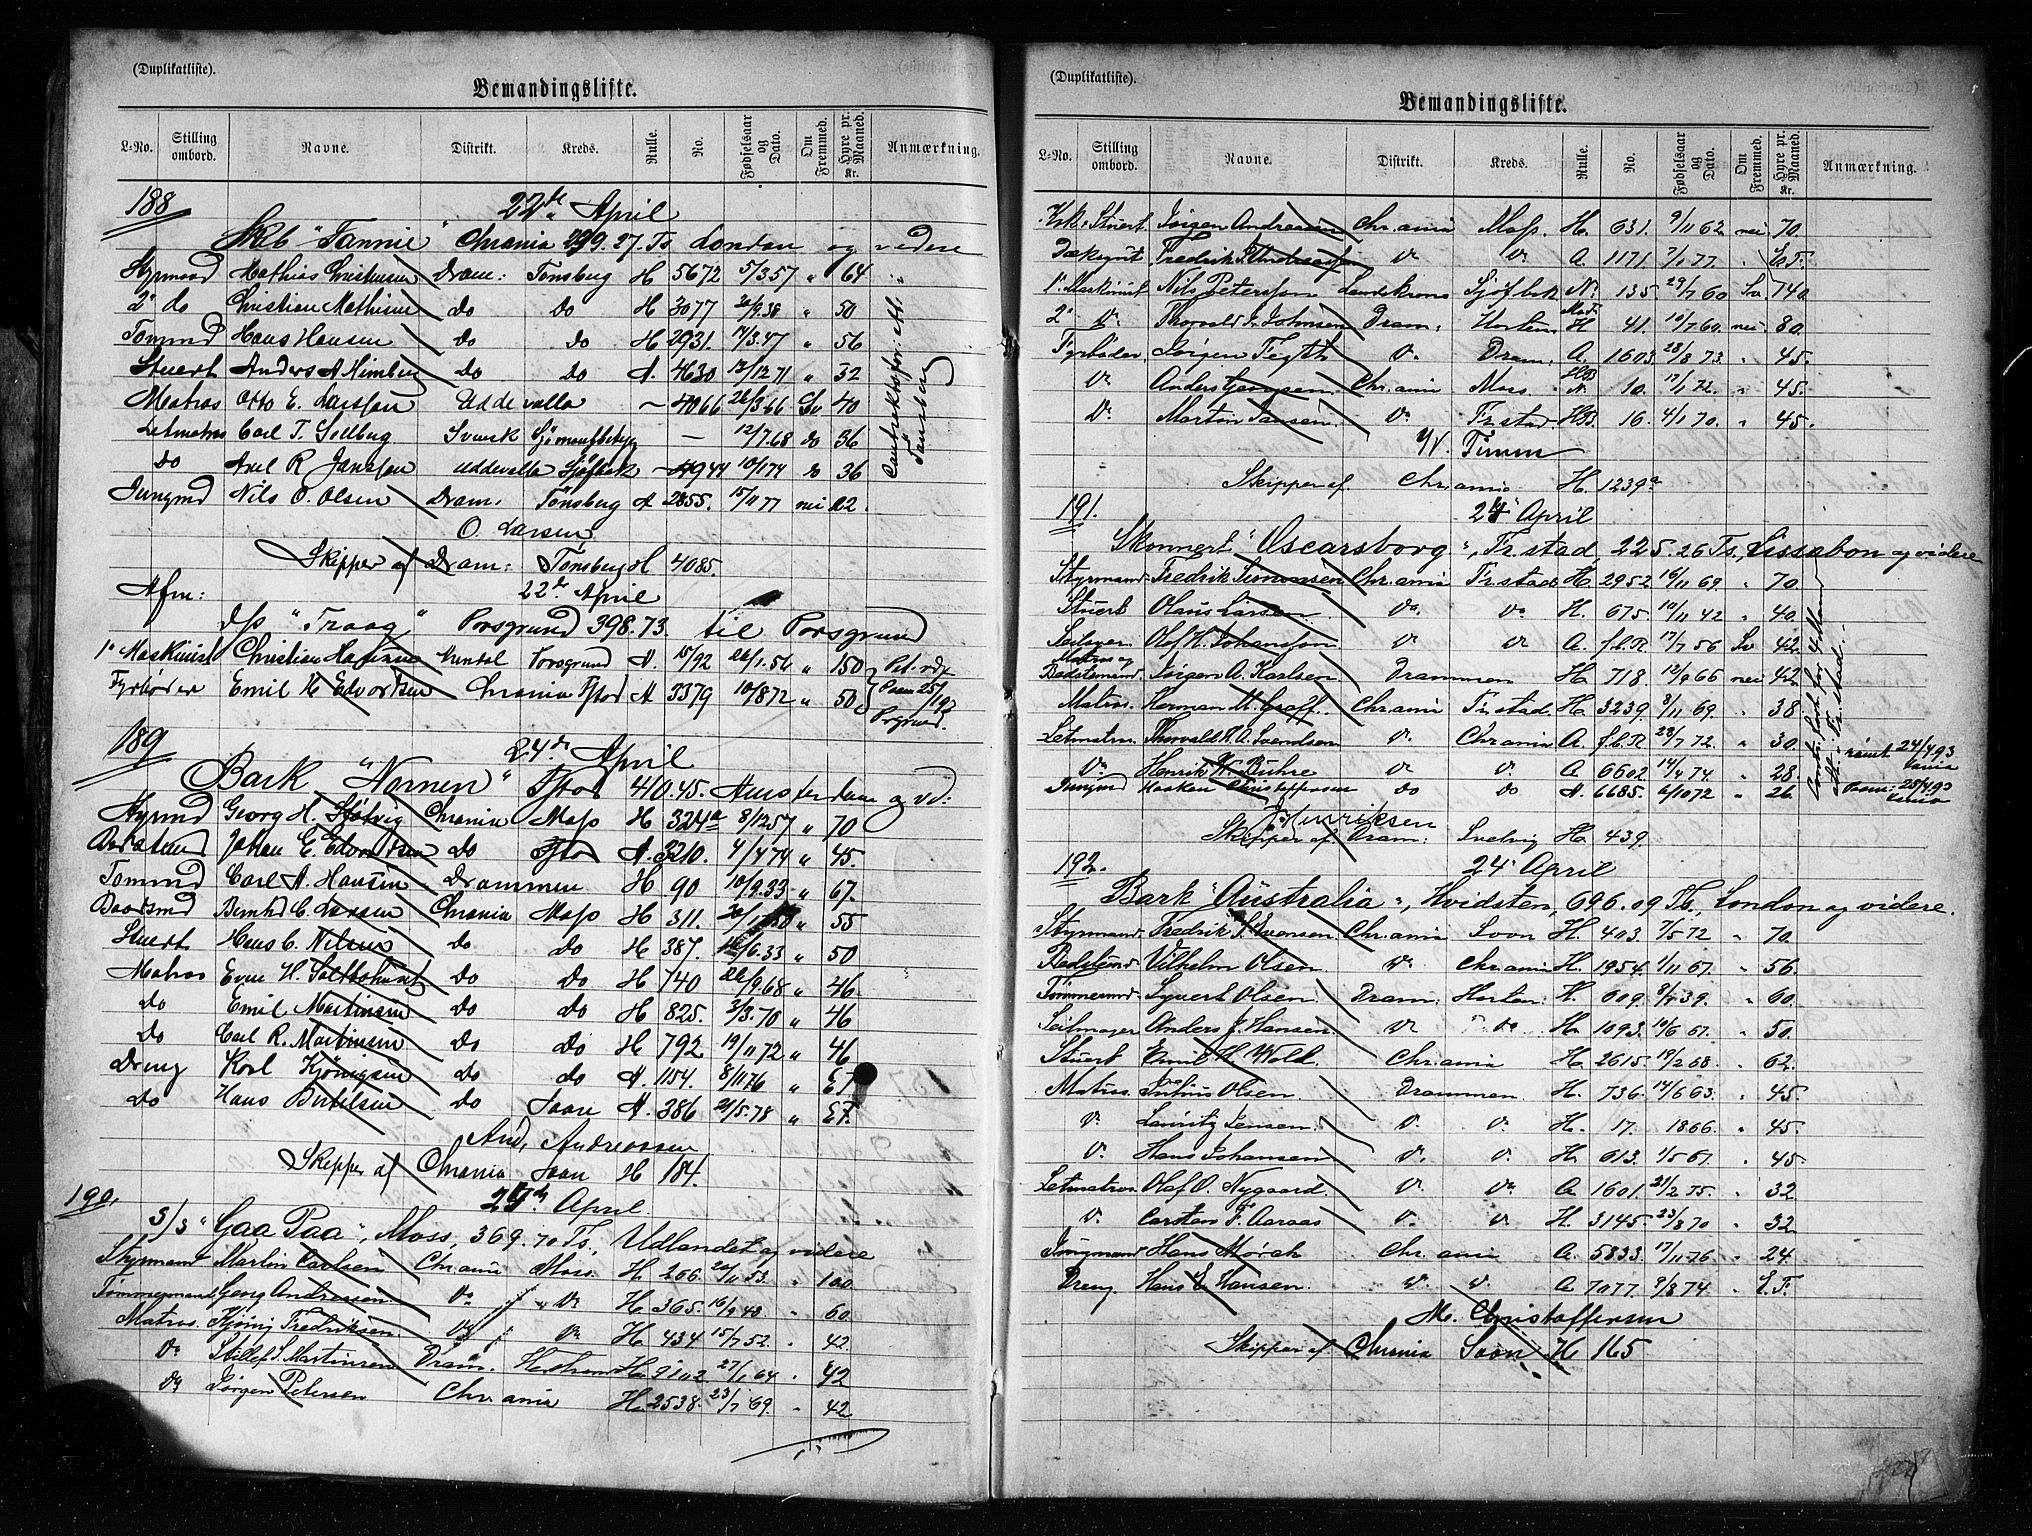 (Duplikatliste).
Bemandingsliste.
L-No. Stilling ombord. Navne. Distrikt. Kreds. Rulle. No. Fødselsaar og Dato. Om Fremmed. Hyre pr. Maaned. Kr. Anmærkning.
188 22de April
Skb "Fannie" Chrania 299.27. Ts London og videre
Styrmand Mathias Christensen Dram: Tønsberg H 5672 5/3.57 " 64
2' do Christian Mathisen do do H 3077 " 50
Tømmd Hans Hansen do do H 2931 17/3.47 " 56
Stuert Anders A do do A. 4630 12/12 71 " 32
Matros Otto E. Larsson Uddevalla - 4066 26/3 66 Sv 40
Letmatros Carl T. Sellberg Svensk - 12/7.68 do 36
do Axel R Jansson Uddevalla Sjöfbek - 4944 10/1 74 do 36
Jungmd Nils O. Olsen Dram: Tönsberg A 2855. 15/11 77 nei 22.
O. Larsen
Skipper af Dram: Tönsberg H 4085.
Afm: 22de April
d/s "Traag" Porsgrund 398.73. til Porsgrund
1' Maskinist Christian Hansen Porsgrund A. 15/92 26/1.56 " 150
Fyrbøder Emil H Edvardsen Chrania Fstad A 3379 10/8 72 " 50
189 24de April
Bark "Nornen" Fstad 410.45. Amsterdam og vd:
Styrmd Georg H. Chrania Moss H 324a 8/12 57 " 70
Johan E. Edvardsen do Fstad A. 3210. 4/4 74 " 45.
Tømmd Carl A. Hansen Drammen H 90 10/9.33 " 67.
Baadsmd Bernhd C. Larsen Chrania Moss H 311. " 55
Stuert Hans C. Nilsen do do H 387. /6.33 " 50
Matros Even H. do do H 740 26/9.68 " 46
do Emil Martinsen do do H 825. 3/3.70 " 46
do Carl R. Martinsen do do H 792 19/11 72 " 46
Dreng Karl Kjönigsen do do A. 1154. 8/11 76 " EF
do Hans Bertelsen do Soon A. 386 21/5.78 " EF.
And. Andreassen
Skipper af Chrania Soon H 184.
190. April.
S/S "Gaa Paa", Moss, 369.70 Ts, Udlandet og videre
Styrmand Martin Carlsen Chr.ania Moss. H 266. 20/11 53. " 100
Tømmermand Georg Andresen do do H 365. 16/9 48 " 60
Matros. Kjönig Fredriksen. do do H 434 15/7 52. " 42
do S. Martinsen Dram. H 9102 27/1 64 " 42
do Jörgen Petersen Chr.ania H. 2538. 23/7 69. " 42
(Duplikatliste).
Bemandingsliste.
L-No. Stilling ombord. Navne. Distrikt. Kreds. Rulle. No. Fødselsaar og Dato. Om Fremmed. Hyre pr. Maaned. Kr. Anmærkning.
Kok & Stuert Jörgen Andreasen Chr.ania Moss. H. 631. 9/11 62 nei 70.
Dæksgut Fredrik do do A. 1171. 7/1 77. "
1' Maskinist Nils Petersson Landskrona Sjöfbek N. 135. 29/7 60 Sv 140.
2' do Thorvald Johnsen Dram. Horten H 41. 19/7 60. nei 80.
Fyrbøder Jörgen do Dram. A. 1603. 28/8 73 " 45.
do Anders Chr.ania Moss 10. 17/1 72. " 45.
do Martin Jansen. do Fr.stad HB. 16. 4/1 70. " 45.
Skipper af Chr.ania H. 1239a
191. April
Skonnert "Oscarsborg", Fr.stad, 225.26 Ts, Lissabon og videre
Styrmand Fredrik Simonsen Chr.ania Fr.stad H. 2952 16/11 69. " 70.
Stuert Olaus Larsen do do H. 675. 10/11 42 " 40.
Olaf K. Johansson do do A. f.b.R 17/7 56 Sv 42.
Matros og Jörgen A. Karlsen Drammen H 718 12/9 66 nei 42
Matros. Herman M. Graff. Chr.ania Fr.stad. H. 3239. 8/11 69. " 38
Letmatros Thorvald R. A. Svendsen do Chr.ania A. f.b.R 23/7 72. " 30. 24/4 93
do Henrik W. Buhre do do A 6602 14/4 74 " 28.
Jungmd Haakon Christoffersen do do A. 6685. 6/10 72 " 26 25/4 93
Henriksen
Skipper af Dram: Svelvig H. 439.
192. 24' April
Bark "Australia", Hvidsten, 696.09 Ts, London og videre.
Styrmand Fredrik S. Svensen Chr.ania Soon H. 403. 7/5 72 " 70.
Vilhelm Olsen do Chr.ania H. 1954. 1/11 67. " 56.
Tømmermd. Syvert Olsen. Dram. Horten. H. 609. 9/7 39. " 60.
Seilmager Anders J. Hansen. do do H. 1093. 10/6 67. " 50.
Stuert Emil H. Wold. Chr.ania H. 2615. 19/2 68. " 62.
Matros. Julius Olsen. Drammen H. 736. 14/6 63. " 45.
do Lauritz Jensen. do do H. 17. 1866. " 45.
do Hans Johansen do do H. 613. 1/5 67. " 45.
Letmatros. Olaf O. Nygaard. do do A 1601. 21/2 75. " 32
do Carsten F. Aaraas do do H. 3145. 23/8 70 " 32
Jungmand Hans Mörch Chr.ania A. 5833. 17/11 76 " 24.
Dreng. Hans E. Hansen. do do A 7077. 9/8 74. " E.F.
M. Christoffersen
Skipper af Chrania Soon H 165